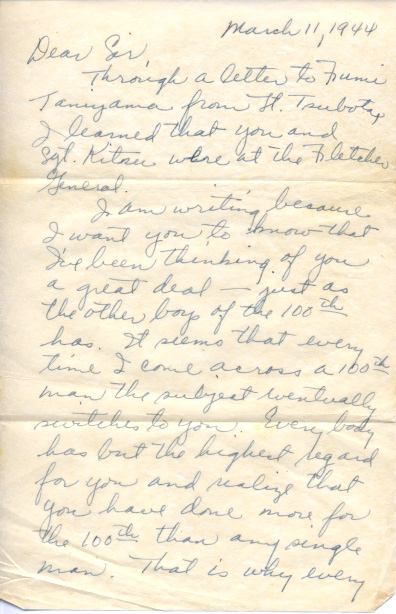 March 11, 1944
Dear Sir,
Through a letter to Fumi
Taniyama from St. Tsubota,
I learned that you and
Sgt. Kitsu were at the Fletcher
General.
I am writing because
I want you to know that
I've been thinking of you
a great deal – just as
the other boys of the 100th
has. It seems that every
time I come across a 100th
man the subject eventually
switches to you. Everybody
has but the highest regard
for you and realize that
you have done more for
the 100th than any single
man. That is why every